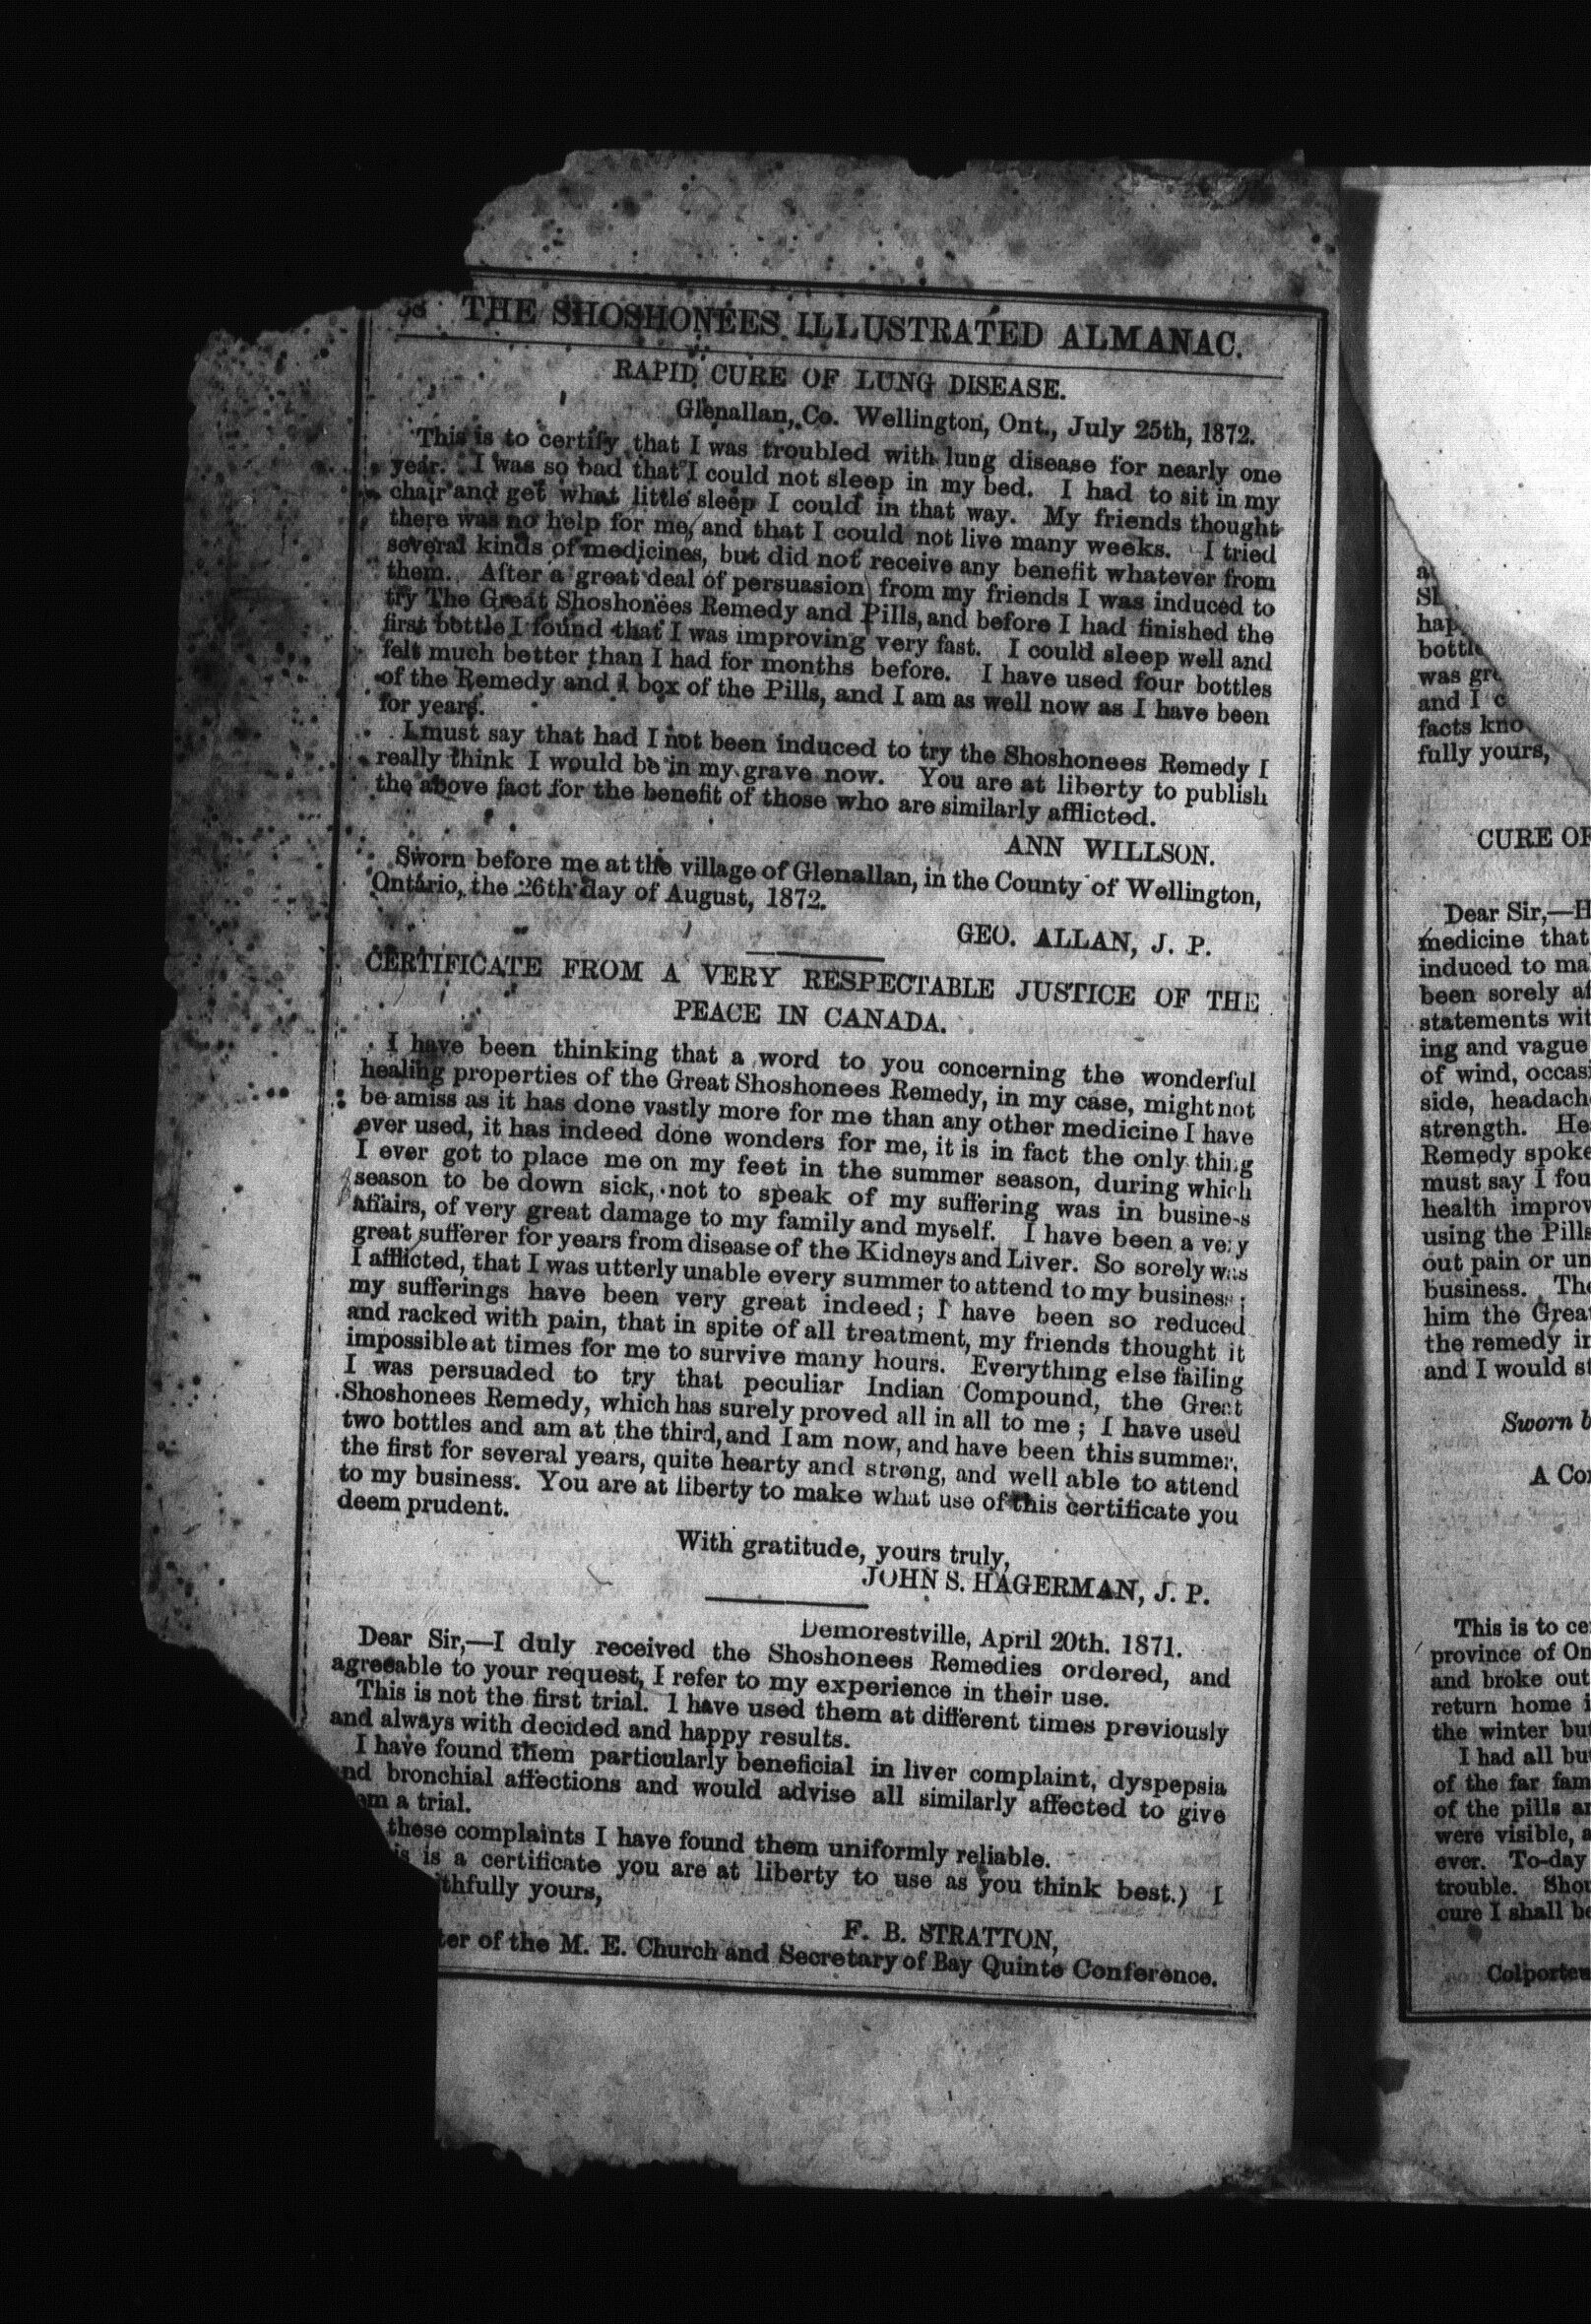 38 THE SHOSHONEES ILLUSTRATED ALMANAC.
RAPID CURE OF LUNG DISEASE.
Glenallan, Co. Wellington, Ont., July 25th, 1872.
This is to certify that I was troubled with lung disease for nearly one
year. I was so bad that I could not sleep in my bed. I had to sit in my
chair and get what little sleep I could in that way. My friends thought
there was no help for me, and that I could not live many weeks. I tried
several kinds of medicines, but did not receive any benefit whatever from
them. After a great deal of persuasion from my friends I was induced to
try The Great Shoshonees Remedy and Pills, and before I had finished the
first bottle I found that I was improving very fast. I could sleep well and
felt much better than I had for months before. I have used four bottles
of the Remedy and 1 box of the Pills, and I am as well now as I have been
for years.
I must say that had I not been induced to try the Shoshonees Remedy I
really think I would be in my grave now. You are at liberty to publish
the above fact for the benefit of those who are similarly afflicted.
ANN WILLSON.
Sworn before me at the village of Glenallan, in the County of Wellington,
Ontario, the 26th day of August, 1872.
GEO. ALLAN, J. P.
CERTIFICATE FROM A VERY RESPECTABLE JUSTICE OF THE
PEACE IN CANADA.
I have been thinking that a word to you concerning the wonderful
healing properties of the Great Shoshonees Remedy, in my case, might not
be amiss as it has done vastly more for me than any other medicine I have
ever used, it has indeed done wonders for me, it is in fact the only thing
I ever got to place me on my feet in the summer season, during which
season to be down sick, not to speak of my suffering was in business
affairs, of very great damage to my family and myself. I have been a very
great sufferer for years from disease of the Kidneys and Liver. So sorely was
I afflicted, that I was utterly unable every summer to attend to my business;
my sufferings have been very great indeed; I have been so reduced
and racked with pain, that in spite of all treatment, my friends thought it
impossible at times for me to survive many hours. Everything else failing
I was persuaded to try that peculiar Indian Compound, the Great
Shoshonees Remedy, which has surely proved all in all to me; I have used
two bottles and am at the third, and I am now, and have been this summer,
the first for several years, quite hearty and strong, and well able to attend
to my business. You are at liberty to make what use of this certificate you
deem prudent.
With gratitude, yours truly,
JOHN S. HAGERMAN, J. P.
Demorestville, April 20th. 1871.
Dear Sir,—I duly received the Shoshonees Remedies ordered, and
agreeable to your request, I refer to my experience in their use.
This is not the first trial. I have used them at different times previously
and always with decided and happy results.
I have found them particularly beneficial in liver complaint, dyspepsia
nd bronchial affections and would advise all similarly affected to give
em a trial.
these complaints I have found them uniformly reliable.
is is a certificate you are at liberty to use as you think best.) I
thfully yours,
F. B. STRATTON,
ter of the M. E. Church and Secretary of Bay Quinte Conference.
hap
bottle
was gre
and I c
facts kno
fully yours,
CURE OF
Dear Sir,—H
medicine that
induced to ma
been sorely af
statements wit
ing and vague
of wind, occasi
side, headach
strength. He
Remedy spoke
must say I fou
health improv
using the Pills
out pain or un
business. The
him the Great
the remedy in
and I would st
Sworn b
A Co
This is to ce
province of On
and broke out
return home i
the winter but
I had all bu
of the far fam
of the pills an
were visible, a
ever. To-day
trouble. Shou
cure I shall be
Colporteu